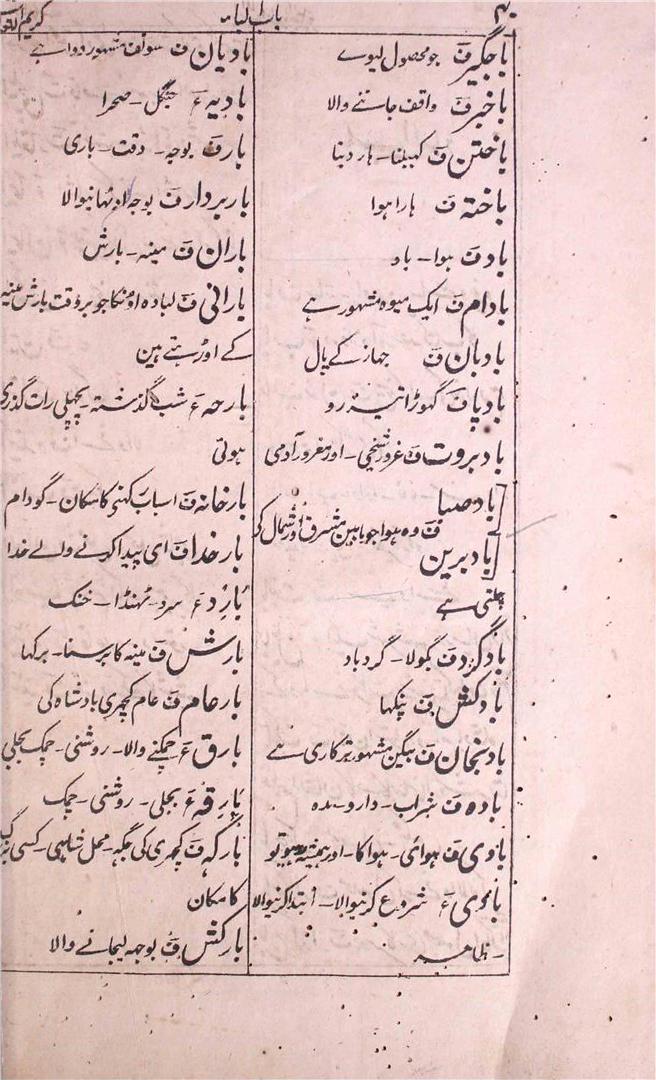 ۴۰
باب البا۔
کریم اللغات
باجگیر ف جو محصول لیوے
باخبر ف واقف جاننے والا
باختن ف کہیلنا۔ ہار دینا
باختہ ف ہارا ہوا
باد ف ہوا۔ باد
بادام ف ایک میوہ مشہور ہے
بادبان ف جہاز کے پال
بادپا ف گہوڑا تیز رو
بادبروت ف غرور شیخی۔ اور مغرور آدمی
بادصبا
ف وہ ہوا جو مابین مشرق اور شمال کے
بادبرین
چلتی ہے
بادگرد ف بگولا۔ گردباد
بادکش ف پنکہا
بادنجان ف بیگن مشہور ترکاری ہے
بادہ ف شراب۔ دارو۔ مدہ
بادی ف ہوائی۔ ہوا کا۔ اور ہمزہ ہو تو
بادی ع شروع کرنیوالا۔ ابتدا کرنیوالا
۔ ظاہر
بادیان ف سونف مشہور دوا ہے
بادیہ ع جنگل۔ صحرا
بار ف بوجہ۔ دقت۔ باری
باربردار ف بوجہ اوٹہانیوالا
باران ف مینہ۔ بارش
بارانی ف لبادہ اونکا جو بروقت بارش مینہ
کے اوڑہتے ہین
بارحہ ع شب گذشتہ۔ پچہلی رات گذری
ہوئی
بارخانہ ف اسباب رکہنی کا مکان۔ گودام
بارخدا ف ای پیدا کرنے والے خدا
بارد ع سرد۔ ٹہنڈا۔ خنک
بارش ف مینہ کا برسنا۔ برکہا
بارعام ف عام کچہری بادشاہ کی
بارق ع چمکنے والا۔ روشنی۔ چمک بجلی
بارقہ ع بجلی۔ روشنی۔ چمک
بارگہ ف کچہری کی جگہ۔ محل شاہی۔ کسی بزرگ
کا مکان
بارکش ف بوجہ لیجانے والا